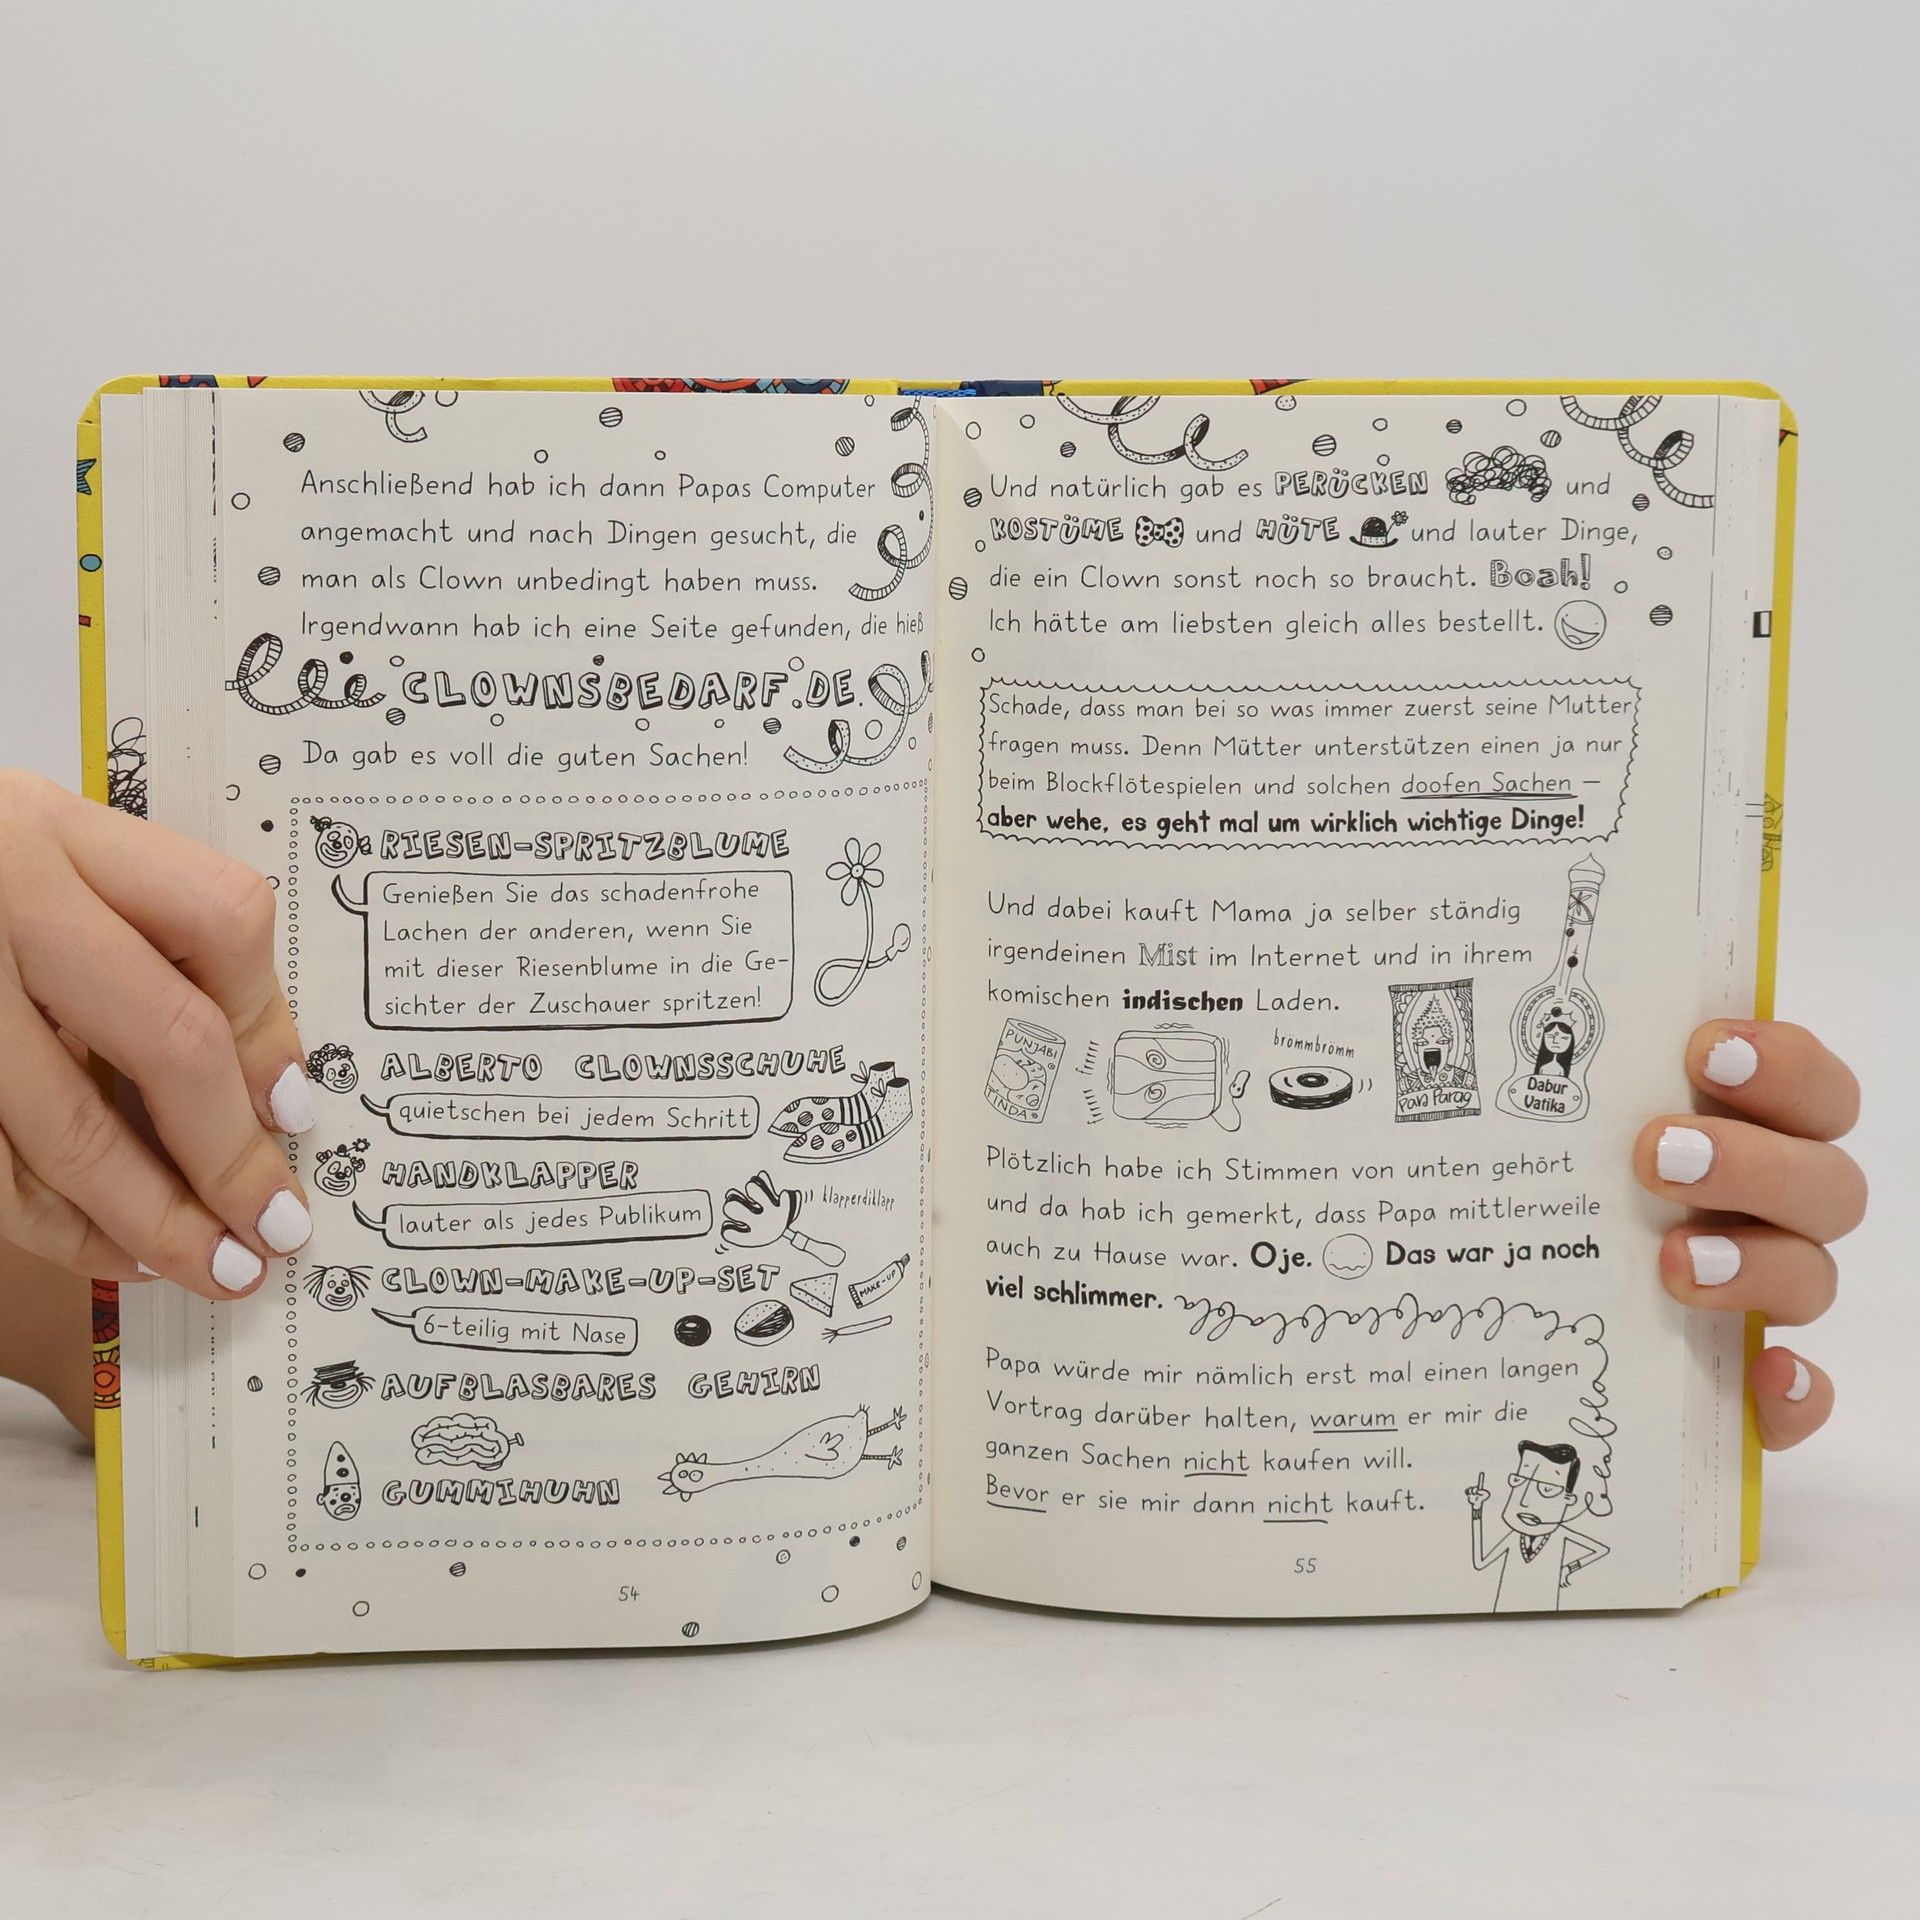 Anschließend hab ich dann Papas Computer
angemacht und nach Dingen gesucht, die
man als Clown unbedingt haben muss.
Irgendwann hab ich eine Seite gefunden, die hieß
CLOWNSBEDARF.DE.
Da gab es voll die guten Sachen!
RIESEN-SPRITZBLUME
Genießen Sie das schadenfrohe
Lachen der anderen, wenn Sie
mit dieser Riesenblume in die Ge-
sichter der Zuschauer spritzen!
ALBERTO CLOWNSSCHUHE
quietschen bei jedem Schritt
HANDKLAPPER
klapperdiklapp
lauter als jedes Publikum
CLOWN-MAKE-UP-SET
MAKE-UP
6-teilig mit Nase
AUFBLASBARES GEHIRN
GUMMIHUHN
54
Und natürlich gab es PERÜCKEN und
KOSTÜME und HÜTE und lauter Dinge,
die ein Clown sonst noch so braucht. Boah!
Ich hätte am liebsten gleich alles bestellt.
Schade, dass man bei so was immer zuerst seine Mutter
fragen muss. Denn Mütter unterstützen einen ja nur
beim Blockflötespielen und solchen doofen Sachen –
aber wehe, es geht mal um wirklich wichtige Dinge!
Und dabei kauft Mama ja selber ständig
irgendeinen Mist im Internet und in ihrem
komischen indischen Laden.
PUNJABI
TINDA
brömmbrömm
Pava Parag
Dabur
Vatika
Plötzlich habe ich Stimmen von unten gehört
und da hab ich gemerkt, dass Papa mittlerweile
auch zu Hause war. Oje. Das war ja noch
viel schlimmer.
Papa würde mir nämlich erst mal einen langen
Vortrag darüber halten, warum er mir die
ganzen Sachen nicht kaufen will.
Bevor er sie mir dann nicht kauft.
55